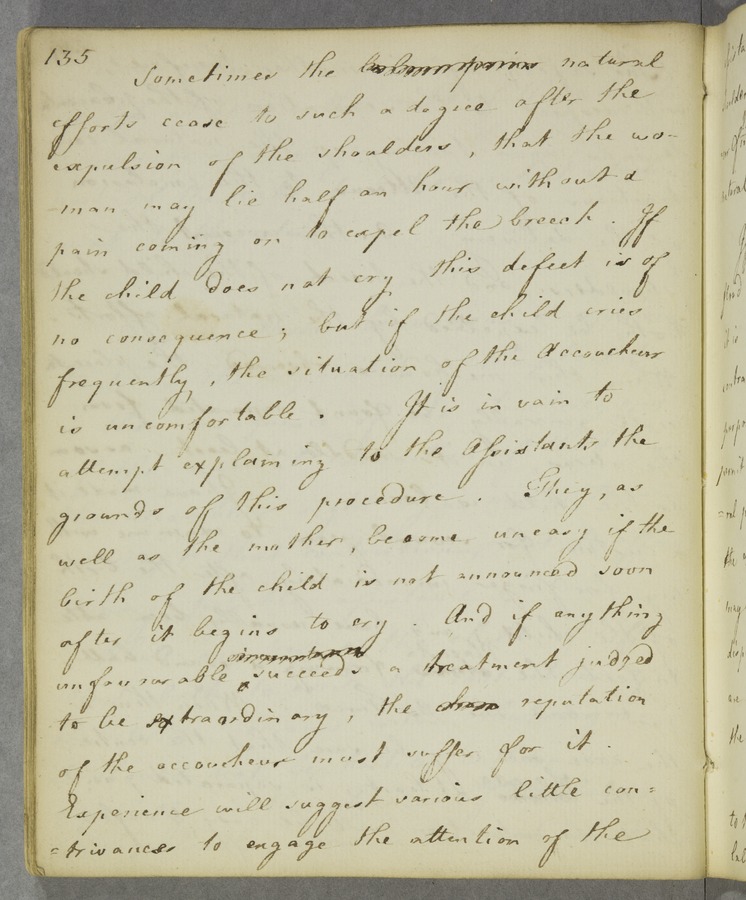 135
Sometimes the natural
efforts cease to such a degree after the
expulsion of the shoulders, that the wo-
-man may lie half an hour without a
pain coming on to expel the breech. If
the child does not cry this defect is of
no consequence; but if the child cries
frequently, the situation of the Accoucheur
is uncomfortable. It is in vain to
attempt explaining to the Assistants the
grounds of this procedure. They, as
well as the mother, become uneasy if the
birth of the child is not announced soon
after it begins to cry. And if any thing
unfavourable succeeds a treatment judged
to be extraordinary, the reputation
of the accoucheur must suffer for it.
Experience will suggest various little con=
=trivances to engage the attention of the